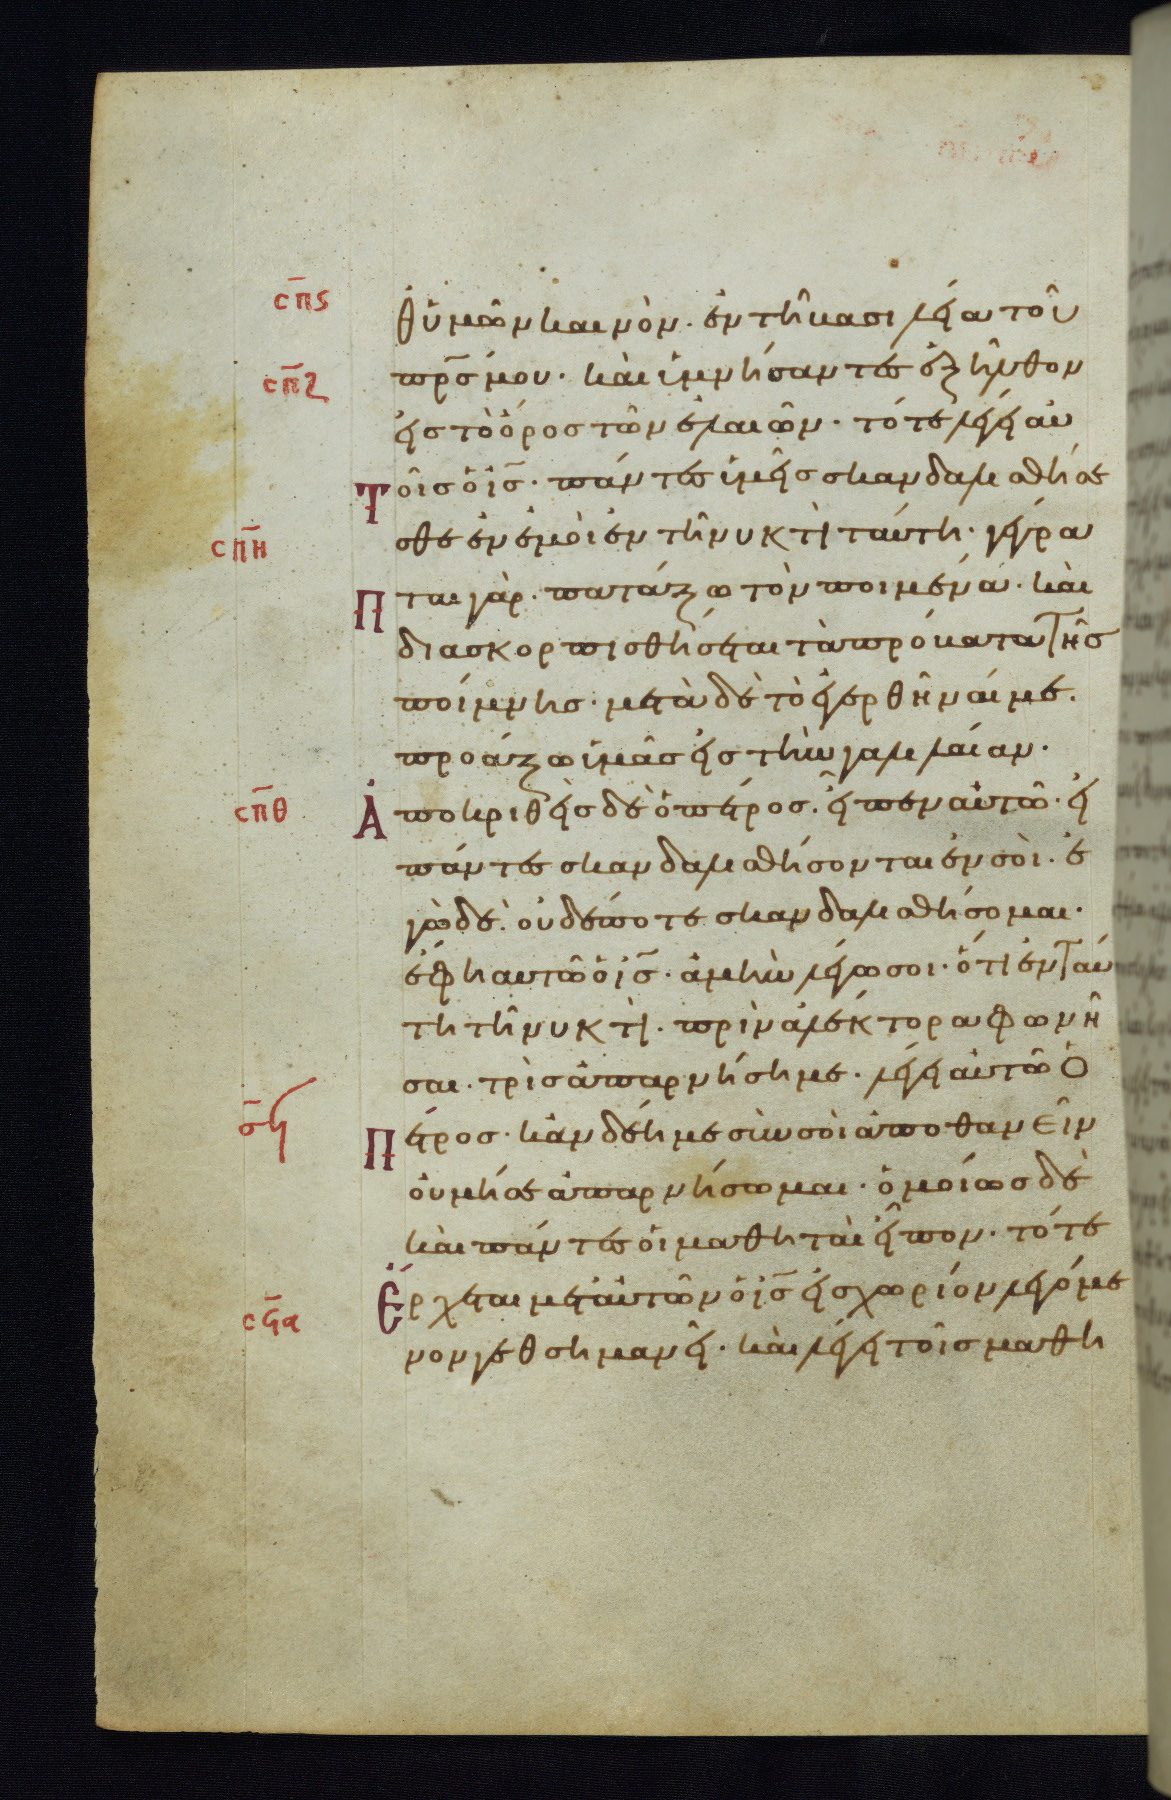 σπς
θ ὑμῶν καινὸν· ἐν τῆ βασιλεία τοῦ
σπζ
πρς μου· καὶ ὑμνήσαντες ἐξῆλθον
εἰς τὸ ὄρος τῶν ἐλαιῶν· τότε λέγει αὐ
Τοῖς ὁ ις· πάντες ὑμεῖς σκανδαλισθήσε
σπη
σθε ἐν ἐμοὶ ἐν τῆ νυκτὶ ταύτη· γέγρα
Πται γὰρ· πατάξω τὸν ποιμένα· καὶ
διασκορπισθήσεται τὰ πρόβατα τῆς
ποίμνης· μετὰ δὲ τὸ ἐγερθῆναί με·
προάξω ὑμᾶς εἰς τὴν γαλιλαίαν·
σπθ
Ἀποκριθεὶς δὲ ὁ πέτρος· εἶπεν αὐτῶ· εἰ
πάντες σκανδαλισθήσονται ἐν σοὶ· ἐ
γὼ δὲ· οὐδέποτε σκανδαλισθήσομαι·
ἔφη αυτῶ ὁ ις· ἀμὴν λέγω σοι· ὅτι ἐν ταύ
τη τῆ νυκτὶ· πρὶν ἀλέκτορα φωνῆ
σαι· τρὶς ἀπαρνήση με· λέγει αὐτῶ ὁ
σϟ
Πέτρος· κἂν δέη με σὺν σοὶ ἀποθανεῖν
οὐ μή σε ἀπαρνήσωμαι· ὁμοίως δὲ
καὶ πάντες οἱ μαθηταὶ εἶπον· τότε
σϟα
Ἔρχεται μετ αὐτῶν ὁ ις εἰς χωρίον λεγόμε
νον γεθσημανεῖ· καὶ λέγει τοῖς μαθη